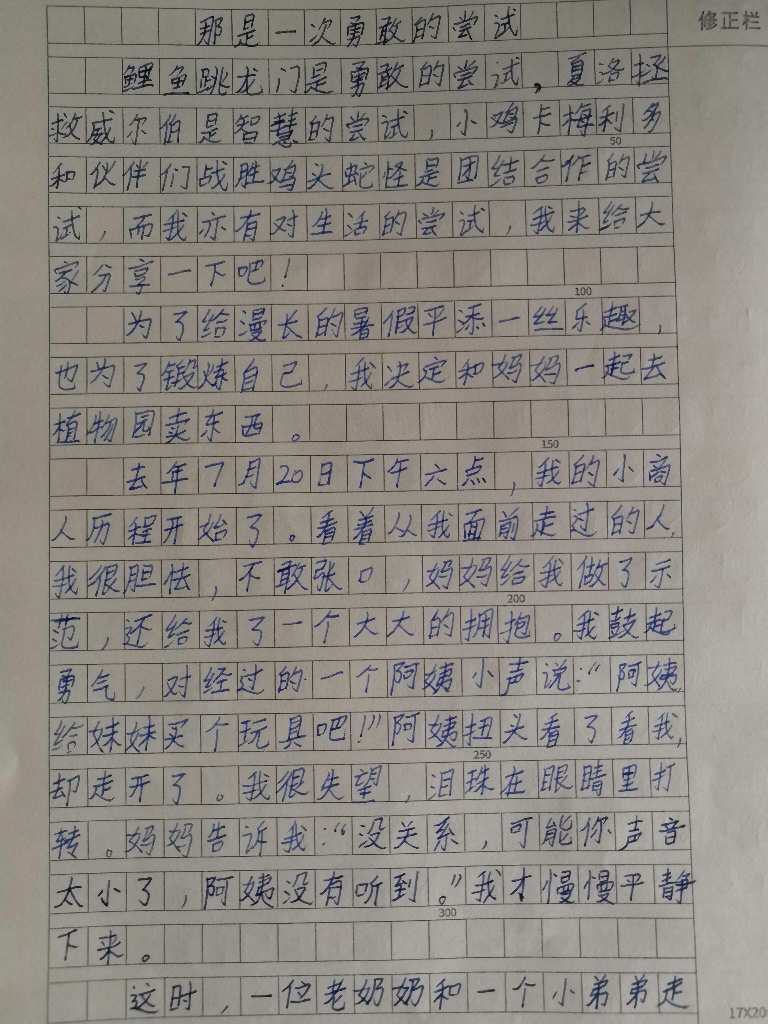 修正栏
那是一次勇敢的尝试
鲤鱼跳龙门是勇敢的尝试，夏洛拯
救威尔伯是智慧的尝试，小鸡卡梅利多
50
和伙伴们战胜鸡头蛇怪是团结合作的尝
试，而我亦有对生活的尝试，我来给大
家分享一下吧！
100
为了给漫长的暑假平添一丝乐趣，
也为了锻炼自己，我决定和妈妈一起去
植物园卖东西。
150
去年7月20日下午六点，我的小商
人历程开始了。看着从我面前走过的人，
我很胆怯，不敢张口，妈妈给我做了示
200
范，还给我了一个大大的拥抱。我鼓起
勇气，对经过的一个阿姨小声说：“阿姨，
给妹妹买个玩具吧！”阿姨扭头看了看我，
250
却走开了。我很失望，泪珠在眼睛里打
转。妈妈告诉我：“没关系，可能你声音
太小了，阿姨没有听到。”我才慢慢平静
300
下来。
这时，一位老奶奶和一个小弟弟走
17X20